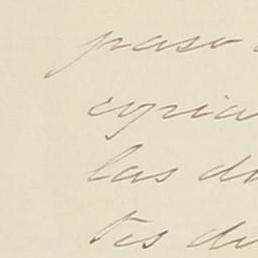 paso
copia
las de
tes de